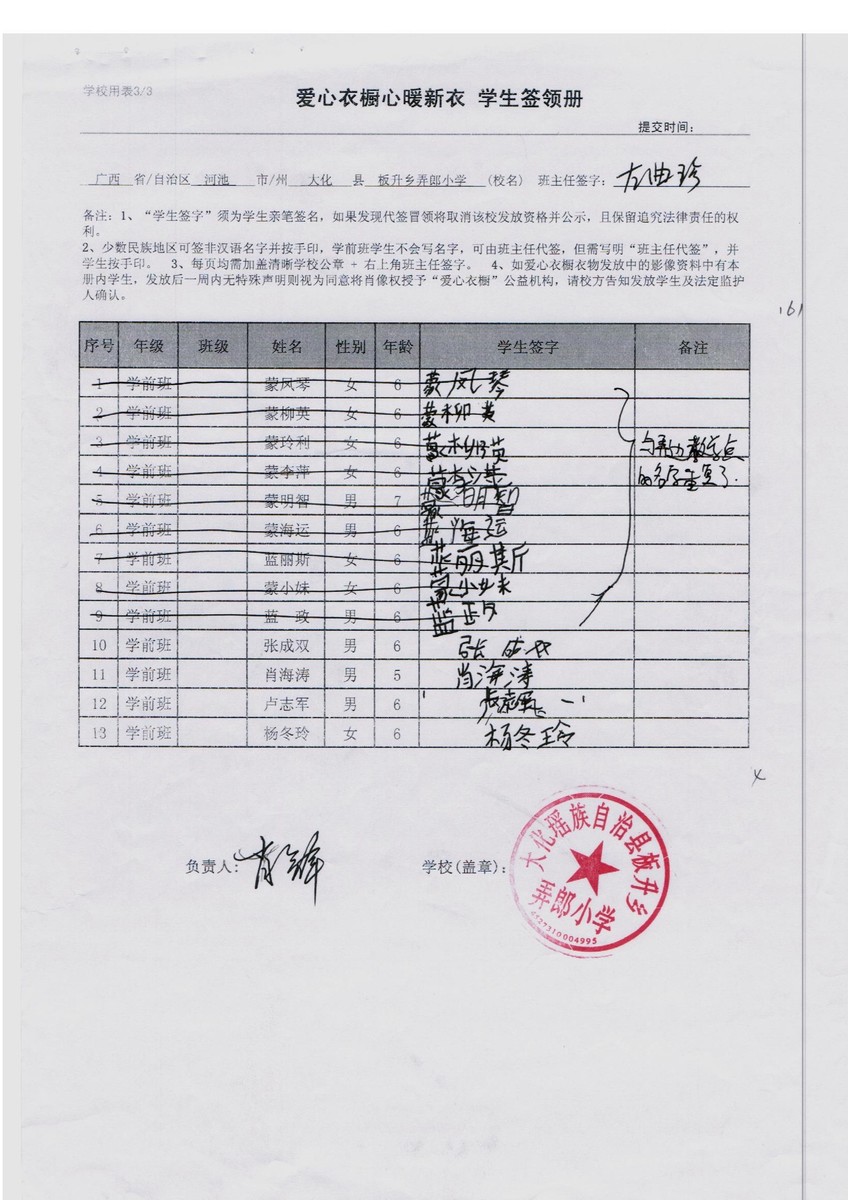 学校用表3/3
爱心衣橱心暖新衣 学生签领册
提交时间:
广西 省/自治区 河池 市/州 大化 县 板升乡弄郎小学 (校名) 班主任签字:
备注: 1、“学生签字”须为学生亲笔签名，如果发现代签冒领将取消该校发放资格并公示，且保留追究法律责任的权
利。
2、少数民族地区可签非汉语名字并按手印，学前班学生不会写名字，可由班主任代签，但需写明“班主任代签”，并
学生按手印。 3、每页均需加盖清晰学校公章 + 右上角班主任签字。 4、如爱心衣橱衣物发放中的影像资料中有本
册内学生，发放后一周内无特殊声明则视为同意将肖像权授予“爱心衣橱”公益机构，请校方告知发放学生及法定监护
人确认。
161
序号 年级 班级 姓名 性别 年龄 学生签字 备注
1 学前班 蒙凤琴 女 6 蒙凤琴
2 学前班 蒙柳英 女 6 蒙柳英
3 学前班 蒙玲利 女 6
4 学前班 蒙李萍 女 6
5 学前班 蒙明智 男 7 蒙明智
6 学前班 蒙海运 男 6 蓝海运
7 学前班 蓝丽斯 女 6 蓝丽斯
8 学前班 蒙小妹 女 6 蒙小妹
9 学前班 蓝 政 男 6 蓝政
的名字重复了.
10 学前班 张成双 男 6 张成双
11 学前班 肖海涛 男 5 肖海涛
12 学前班 卢志军 男 6
13 学前班 杨冬玲 女 6 杨冬玲
负责人: 学校(盖章):
大化瑶族自治县板升乡
弄郎小学